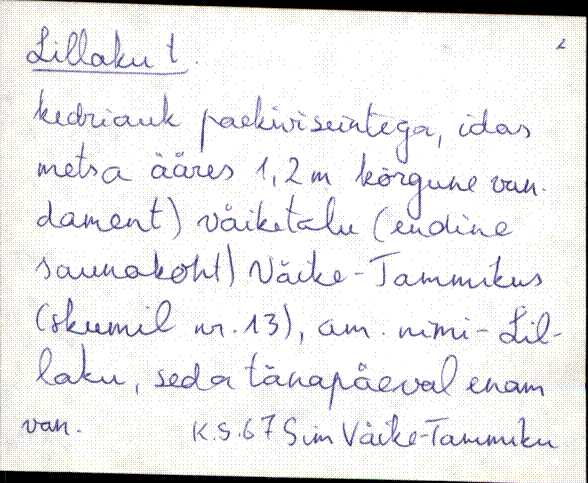 Lillaku t.
kedriauk paekiviseintega, idas
metsa ääres 1,2m kõrgune van.
dament) väiketalu (endine
saunakoht) Väike-Tammikus
(skeemil nr. 13), am. nimi - Lil-
laku, seda tänapäeval enam
van. K.S.67 Sim Väike-Tammiku